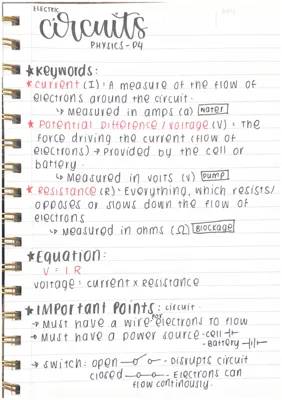 ELECTRIC
circuits
PHYSICS - P4
★ Keywords:
★ Current (I): A measure of the flow of
electrons around the circuit.
↳ Measured in amps (a) water
★ Potential Difference / Voltage (V): The
force driving the current (flow of
electrons) → Provided by the cell or
battery.
↳ Measured in volts (v) pump
★ Resistance (R): Everything, which resists/
opposes or slows down the flow of
electrons
↳ Measured in ohms (Ω) Blockage
★ Equation:
V = I R
voltage: current × resistance
★ IMPORTANT Points: circuit.
→ Must have a wire for electrons to flow
→ Must have a power source - cell
- battery
→ switch: open - Disrupts circuit
closed - Electrons can
flow continously.